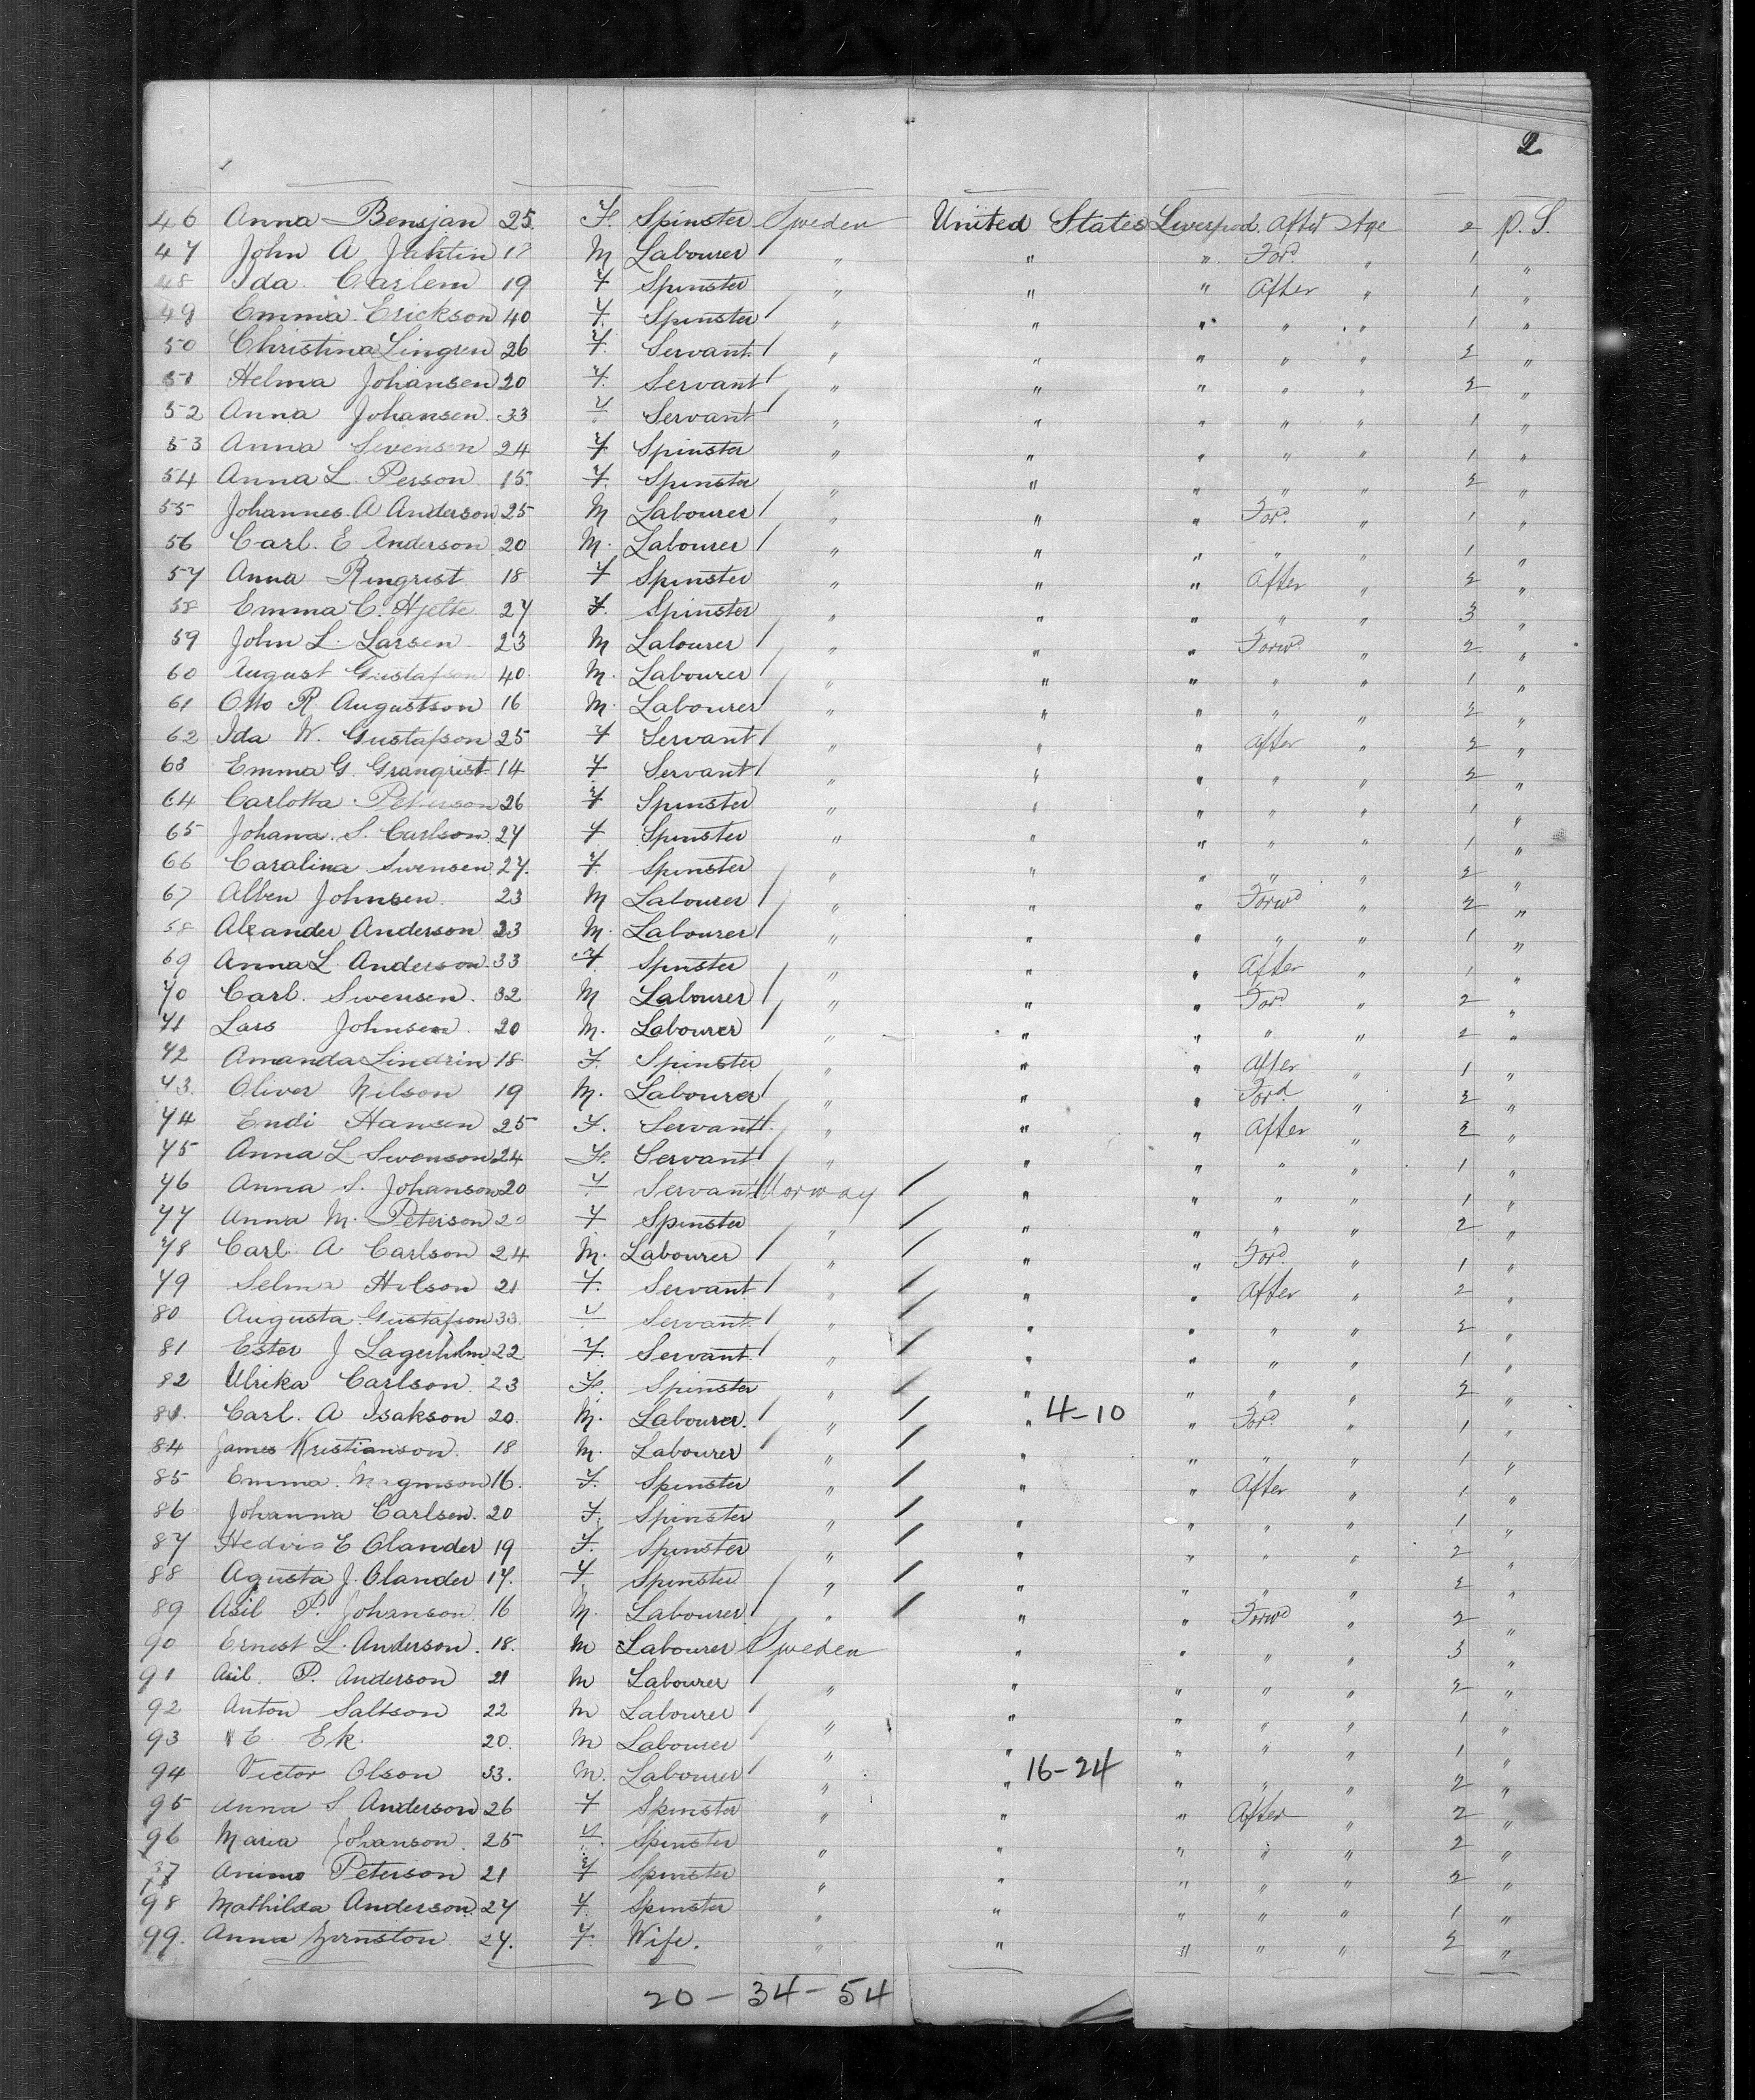 2
46 Anna Bensjan 25. F. Spinster Sweden United States Liverpool. After Age 2 P. S.
47 John A Jahtin M Labourer " " " Ford. " 1 "
48 Ida Carlem 19 F Spinster " " " After " 1 "
49 Emmia Erickson 40 F. Spinster " " " " " 1 "
50 Christina Lingren 26 F. Servant " " " " " 2 "
51 Helma Johansen 20 F. Servant " " " " " 2 "
52 Anna Johansen 33 F Servant " " " " " 1 "
53 Anna Swensen 24 F Spinster " " " " " 1 "
54 Anna L. Person 15. F. Spinster " " " " " 2 "
55 Johannes A Anderson 25 M Labourer " " " Ford. " 1 "
56 Carl. E Anderson 20 M. Labourer " " " " " 1 "
57 Anna Ringrist 18 F Spinster " " " After " 2 "
58 Emma C. Hjelte 27 F. Spinster " " " " " 3 "
59 John L. Larsen 23 M Labourer " " " Forwd " 2 "
60 August Gustafson 40 M. Labourer " " " " " 1 "
61 Otto R Augustson 16 M. Labourer " " " " " 2 "
62 Ida W. Gustafson 25 F Servant " " " After " 2 "
63 Emma G. Granqrist 14 F Servant " " " " " 2 "
64 Carlotta Peterson 26 F Spinster " " " " " 1 "
65 Johana. S. Carlson 27 F Spinster " " " " " 1 "
66 Caralina Swensen 27. F. Spinster " " " " " 2 "
67 Alben Johnsen 23 M Labourer " " " Forwd " 2 "
58 Aleander Anderson 23 M. Labourer " " " " " 1 "
69 Anna L. Anderson 33 F Spnster " " " After " 1 "
70 Carl. Swensen. 32 M Labourer " " " Ford " 2 "
71 Lars Johnsen 20 M. Labourer " " " " " 2 "
72 Amanda Lindrin 18 F. Spinster " " " After " 1 "
73. Oliver Nilson 19 M. Labourer " " " Ford " 2 "
74 Endi Hansen 25 F. Servant " " " After " 2 "
75 Anna L Swenson 24 F. Servant " " " " " 1 "
76 Anna S. Johanson 20 F Servant Norway " " " " 1 "
77 Anna M. Peterson 20 F Spinster " " " " " 2 "
78 Carl A Carlson 24 M. Labourer " " " Ford. " 1 "
79 Selma Holson 21 F. Servant " " " After " 2 "
80 Augusta Gustafson 33. F Servant " " " " " 2 "
81 Ester J Lagerholm 22 F. Servant " " " " " 1 "
82 Ulrika Carlson 23 F. Spinster " " " " " 2 "
Carl. A Isakson 20. M. Labourer. " " 4-10 " Ford. " 1 "
84 James Kristianson. 18 M. Labourer " " " " " 1 "
85 Emma. Magmson 16. F. Spinster " " " After " 1 "
86 Johanna Carlsen. 20 F. Spinster " " " " " 1 "
87 Hedvig E Olander 19 F. Spinster " " " " " 2 "
88 Agusta J. Olander 17. F Spinster " " " " " 2 "
89 Asil P. Johanson 16 M. Labourer " " " Forwd " 2 "
90 Ernest L. Anderson. 18. M Labourer Sweden " " " " 3 "
91 Asil. P. Anderson 21 M Labourer " " " " " 2 "
92 Anton Saltson 22 M Labourer " " " " " 1 "
93 E. Ek. 20. M Labourer " " " " " 1 "
94 Victor Olson 33. M. Labourer " " 16-24 " " " 2 "
95 Anna S Anderson 26 F Spinster " " " After " 2 "
96 Maria Johanson. 25 F. Spinster " " " " " 2 "
97 Peterson 21 F Spinster " " " " " 2 "
98 Mathilda Anderson 27 F. Spinster " " " " " 1 "
99. Anna 27. F. Wife. " " " " " 2 "
20-34-54